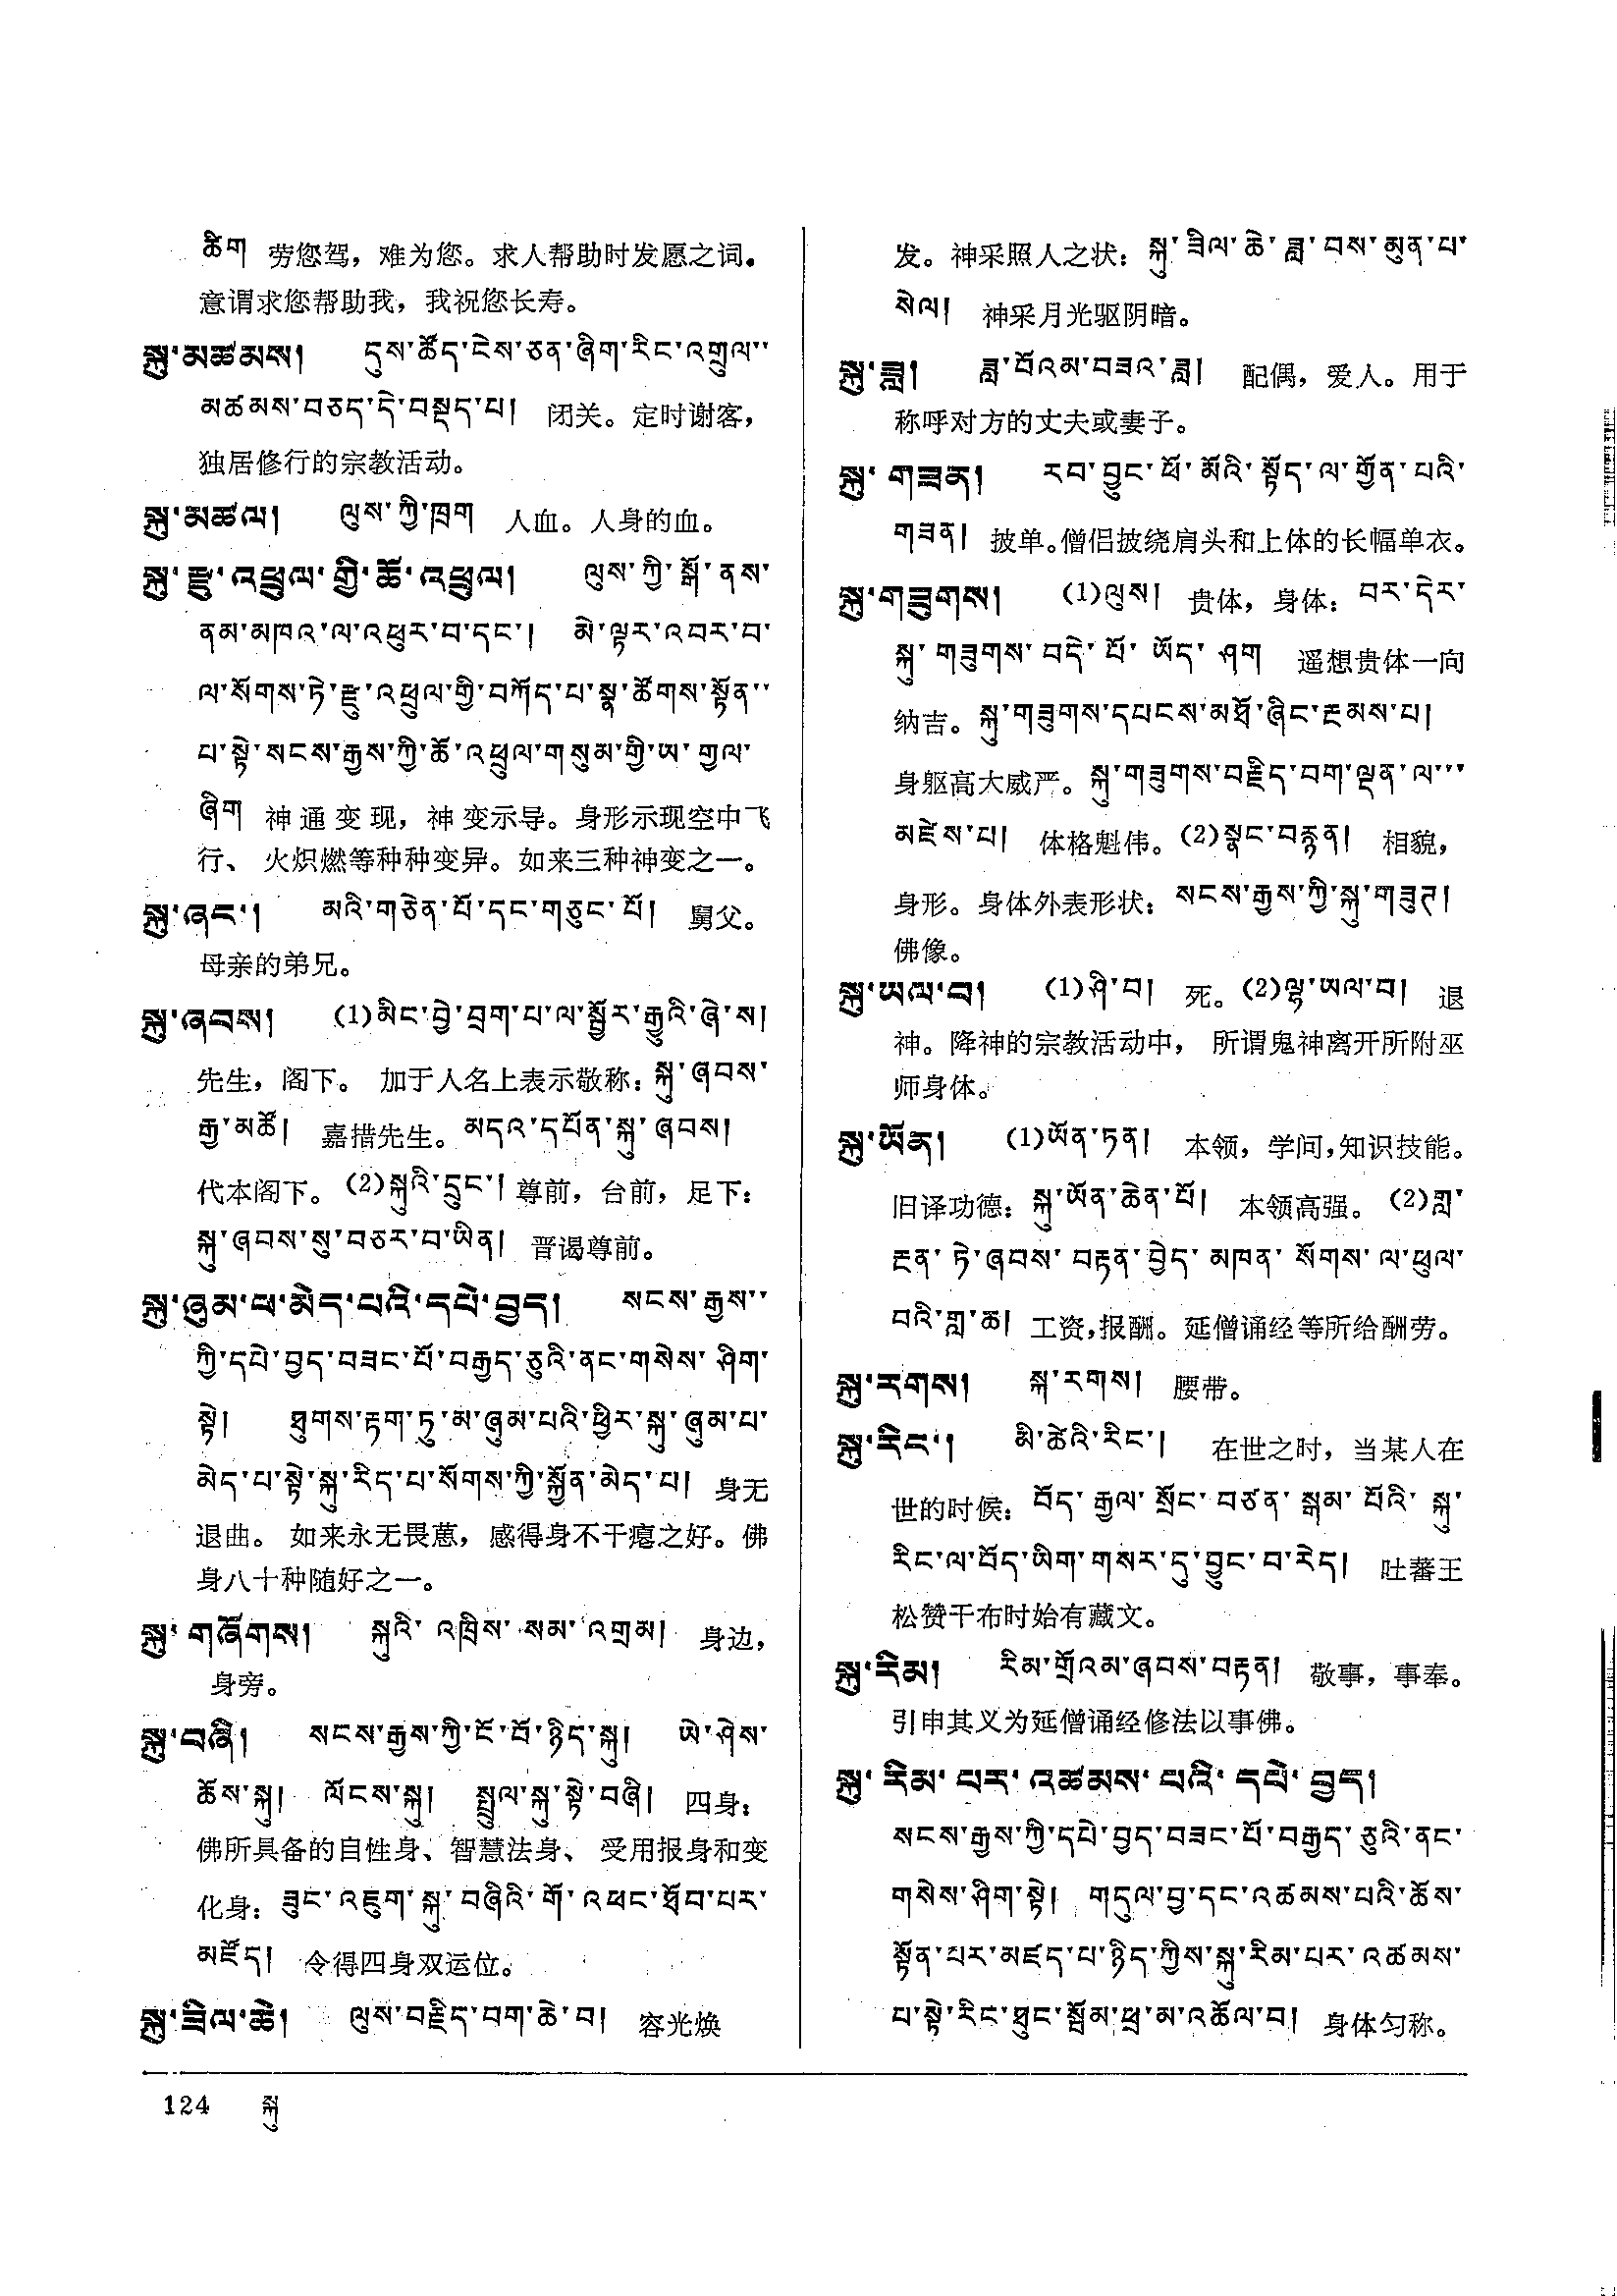 ཚིག 劳您驾，难为您。求人帮助时发愿之词。
意谓求您帮助我，我祝您长寿。
སྐུ་མཚམས། དུས་ཚོད་ངེས་ཅན་ཞིག་རིང་འགྲུལ་་
མཚམས་བཅད་དེ་བསྡད་པ། 闭关。定时谢客，
独居修行的宗教活动。
སྐུ་མཚལ། ལུས་ཀྱི་ཁྲག 人血。人身的血。
སྐུ་རྫུ་འཕྲུལ་གྱི་ཆོ་འཕྲུལ། ལུས་ཀྱི་སྒོ་ནས་
ནམ་མཁའ་ལ་འཕུར་བ་དང་། མེ་ལྟར་འབར་བ་
ལ་སོགས་ཏེ་རྫུ་འཕྲུལ་གྱི་བཀོད་པ་སྣ་ཚོགས་སྟོན་་
པ་སྟེ་སངས་རྒྱས་ཀྱི་ཆོ་འཕྲུལ་གསུམ་གྱི་ཡ་གྱལ་
ཞིག 神通变现，神变示导。身形示现空中飞
行、火炽燃等种种变异。如来三种神变之一。
སྐུ་ཞང་། མའི་གཅེན་པོ་དང་གཅུང་པོ། 舅父。
母亲的弟兄。
སྐུ་ཞབས། (1)མིང་བྱེ་བྲག་པ་ལ་སྦྱོར་རྒྱུའི་ཞེ་ས།
先生，阁下。加于人名上表示敬称：སྐུ་ཞབས་
རྒྱ་མཚོ། 嘉措先生。མདའ་དཔོན་སྐུ་ཞབས།
代本阁下。(2)སྐུའི་དྲུང་། 尊前，台前，足下：
སྐུ་ཞབས་སུ་བཅར་བ་ཡིན། 晋谒尊前。
སྐུ་ཞུམ་པ་མེད་པའི་དཔེ་བྱད། སངས་རྒྱས་་
ཀྱི་དཔེ་བྱད་བཟང་པོ་བརྒྱད་ཅུའི་ནང་གསེས་ཤིག་
སྟེ། ཐུགས་རྟག་ཏུ་མ་ཞུམ་པའི་ཕྱིར་སྐུ་ཞུམ་པ་
མེད་པ་སྟེ་སྐུ་རིད་པ་སོགས་ཀྱི་སྐྱོན་མེད་པ། 身无
退曲。如来永无畏葸，感得身不干瘪之好。佛
身八十种随好之一。
སྐུ་གཞོགས། སྐུའི་འཁྲིས་སམ་འགྲམ། 身边，
身旁。
སྐུ་བཞི། སངས་རྒྱས་ཀྱི་ངོ་བོ་ཉིད་སྐུ། ཡེ་ཤེས་
ཆོས་སྐུ། ལོངས་སྐུ། སྤྲུལ་སྐུ་སྟེ་བཞི། 四身：
佛所具备的自性身、智慧法身、受用报身和变
化身：ཟུང་འཇུག་སྐུ་བཞིའི་གོ་འཕང་ཐོབ་པར་
མཛོད། 令得四身双运位。
སྐུ་ཟིལ་ཆེ། ལུས་བརྗིད་བག་ཆེ་བ། 容光焕
发。神采照人之状：སྐུ་ཟིལ་ཆེ་ཟླ་བས་མུན་པ་
སེལ། 神采月光驱阴暗。
སྐུ་ཟླ། ཟླ་བོའམ་བཟའ་ཟླ། 配偶，爱人。用于
称呼对方的丈夫或妻子。
སྐུ་གཟན། རབ་བྱུང་ཕོ་མོའི་སྟོད་ལ་གྱོན་པའི་
གཟན། 披单。僧侣披绕肩头和上体的长幅单衣。
སྐུ་གཟུགས། (1)ལུས། 贵体，身体：བར་དེར་
སྐུ་གཟུགས་བདེ་པོ་ཡོད་ཤག 遥想贵体一向
纳吉。སྐུ་གཟུགས་དཔངས་མཐོ་ཞིང་རྔམས་པ།
身躯高大威严。སྐུ་གཟུགས་བརྗིད་བག་ལྡན་ལ་་་
མཛེས་པ། 体格魁伟。(2)སྣང་བརྙན། 相貌，
身形。身体外表形状：སངས་རྒྱས་ཀྱི་སྐུ་གཟུཊ།
佛像。
སྐུ་ཡལ་བ། (1)ཤི་བ། 死。(2)ལྷ་ཡལ་བ། 退
神。降神的宗教活动中，所谓鬼神离开所附巫
师身体。
སྐུ་ཡོན། (1)ཡོན་ཏན། 本领，学问，知识技能。
旧译功德：སྐུ་ཡོན་ཆེན་པོ། 本领高强。(2)གླ་
རྔན་ཏེ་ཞབས་བརྟན་བྱེད་མཁན་སོགས་ལ་ཕུལ་
བའི་གླ་ཆ། 工资，报酬。延僧诵经等所给酬劳。
སྐུ་རགས། སྐ་རགས། 腰带。
སྐུ་རིང་། མི་ཚེའི་རིང་། 在世之时，当某人在
世的时候：བོད་རྒྱལ་སྲོང་བཙན་སྒམ་པོའི་སྐུ་
རིང་ལ་བོད་ཡིག་གསར་དུ་བྱུང་བ་རེད། 吐蕃王
松赞干布时始有藏文。
སྐུ་རིམ། རིམ་གྲོའམ་ཞབས་བརྟན། 敬事，事奉。
引申其义为延僧诵经修法以事佛。
སྐུ་རིམ་པར་འཚམས་པའི་དཔེ་བྱད།
སངས་རྒྱས་ཀྱི་དཔེ་བྱད་བཟང་པོ་བརྒྱད་ཅུའི་ནང་
གསེས་ཤིག་སྟེ། གདུལ་བྱ་དང་འཚམས་པའི་ཆོས་
སྟོན་པར་མཛད་པ་ཉིད་ཀྱིས་སྐུ་རིམ་པར་འཚམས་
པ་སྟེ་རིང་ཐུང་སྦོམ་ཕྲ་མ་འཆོལ་བ། 身体匀称。
124 སྐུ